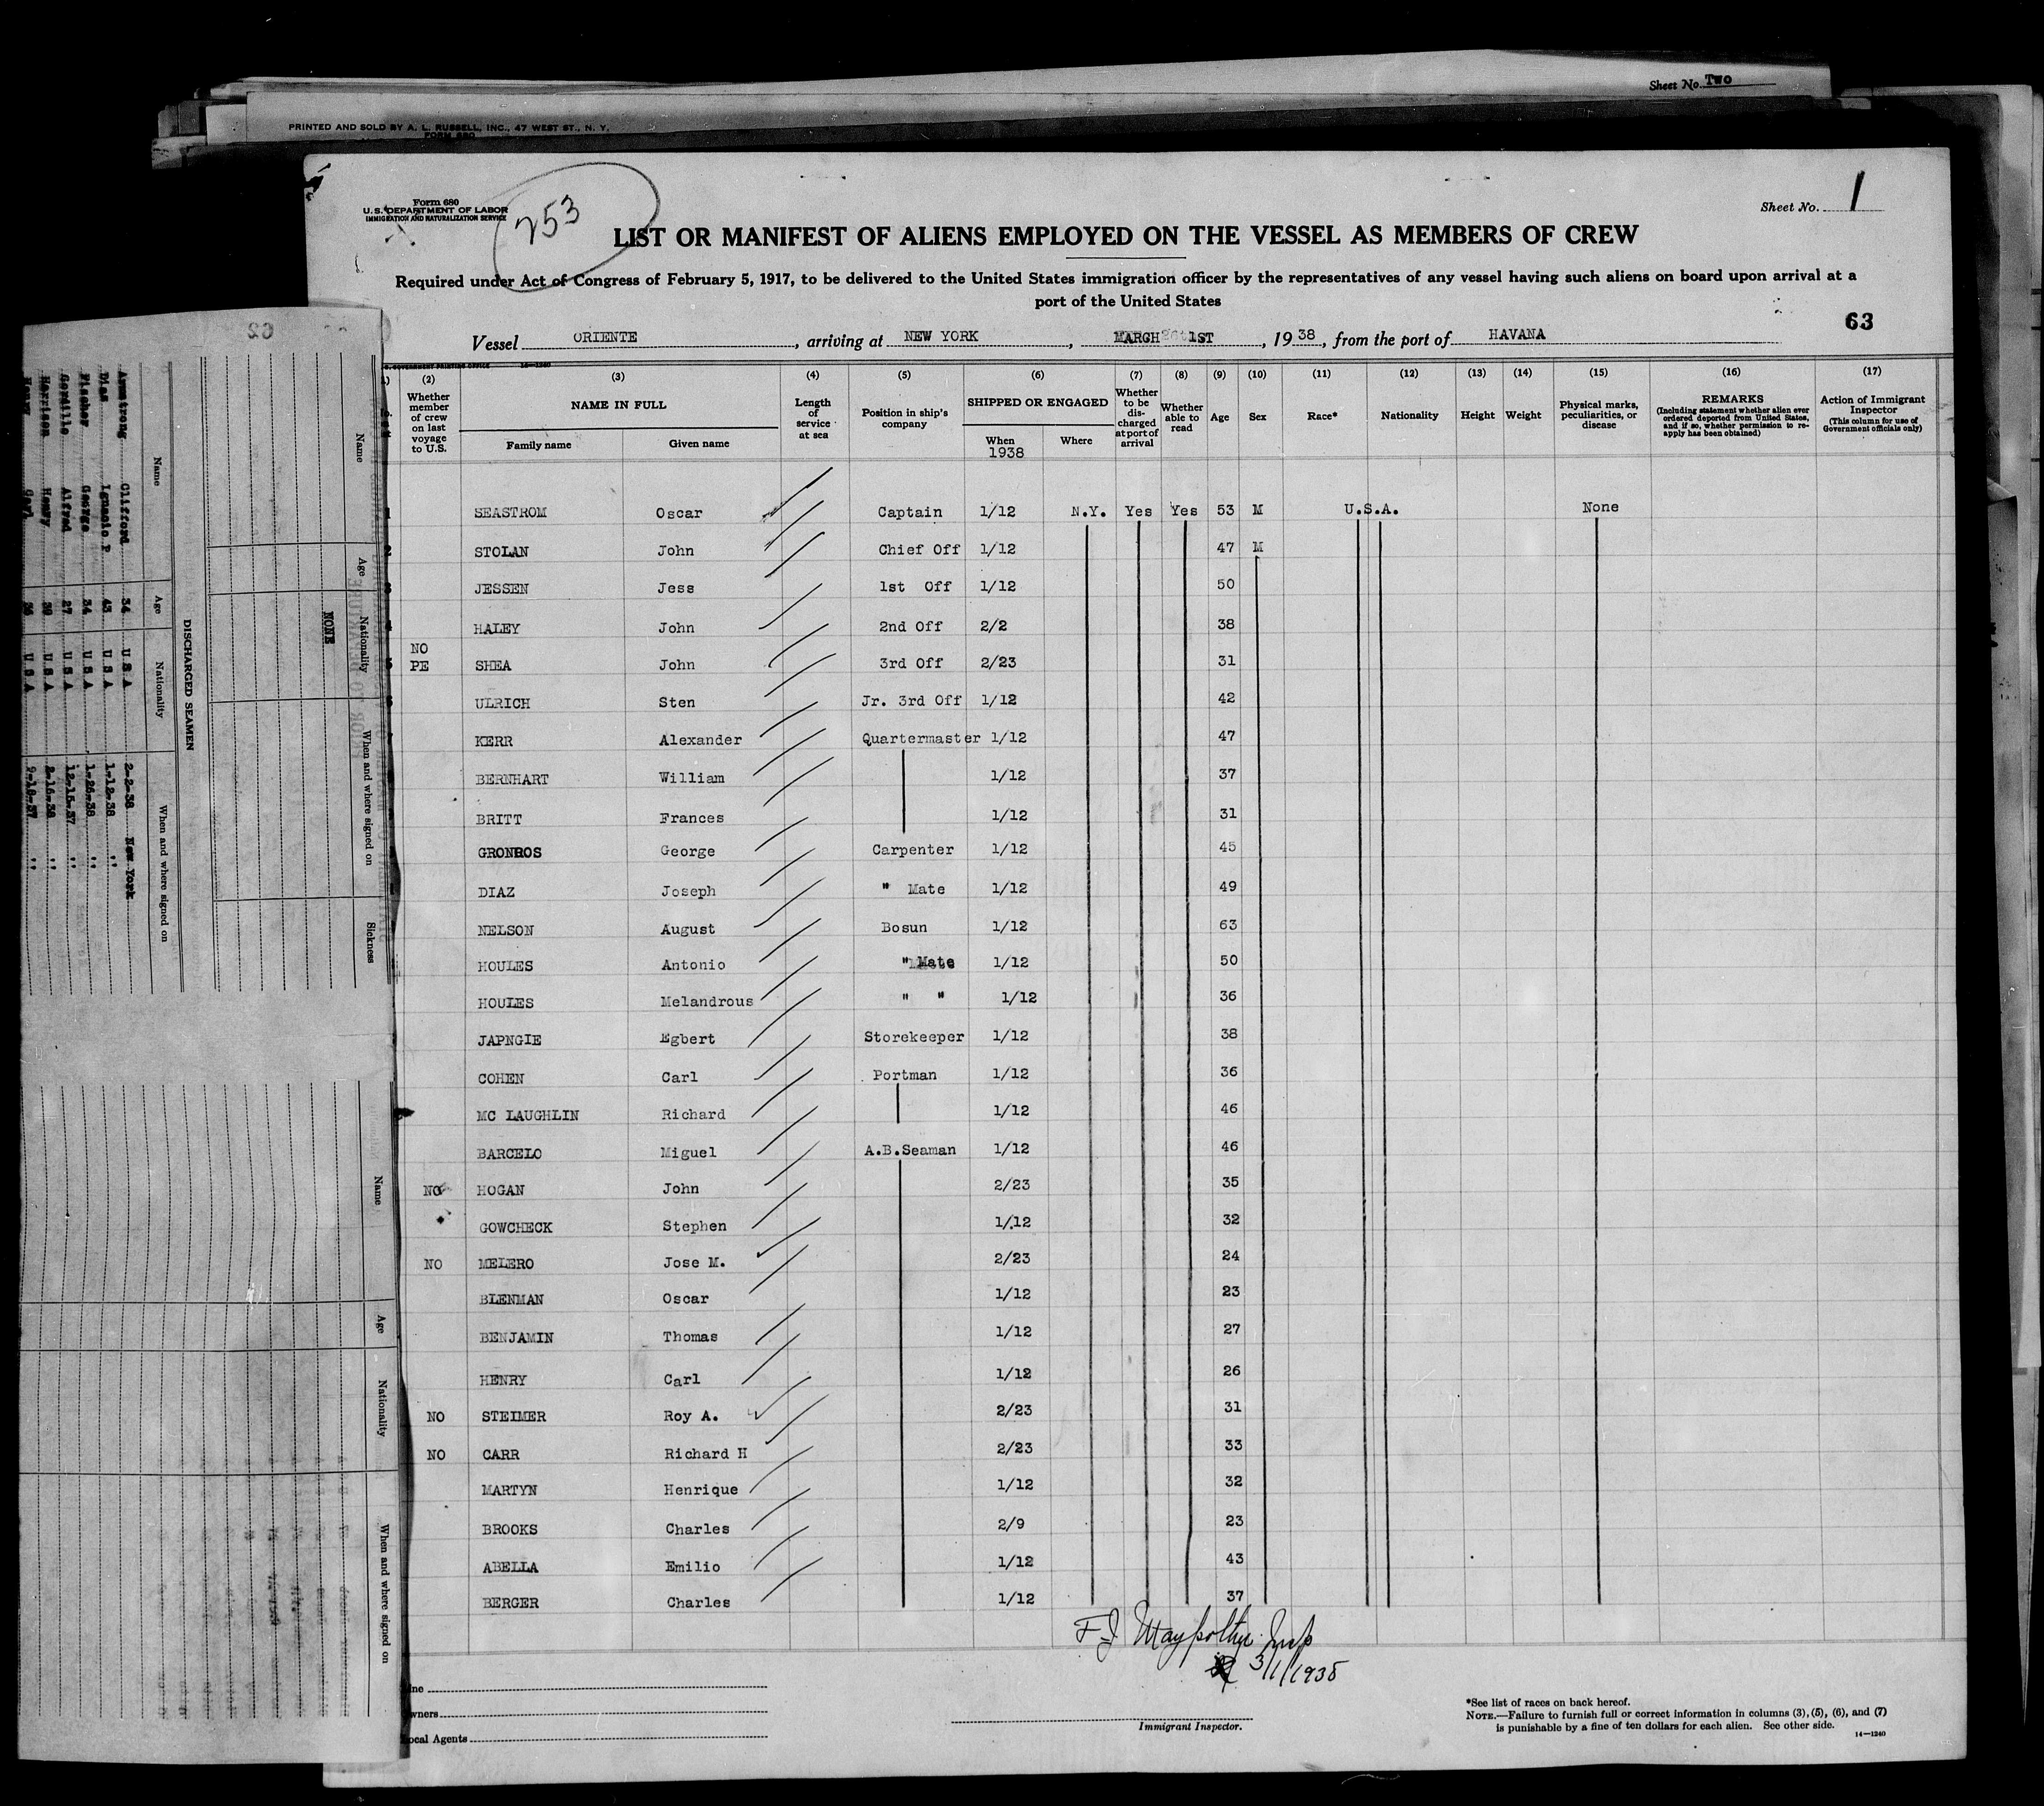 Sheet No. Two
PRINTED AND SOLD BY A. L. RUSSELL, INC., 47 WEST ST., N. Y.
FORM 680
Form 680
U. S. DEPARTMENT OF LABOR
IMMIGRATION AND NATURALIZATION SERVICE
253
Sheet No. 1
LIST OR MANIFEST OF ALIENS EMPLOYED ON THE VESSEL AS MEMBERS OF CREW
Required under Act of Congress of February 5, 1917, to be delivered to the United States immigration officer by the representatives of any vessel having such aliens on board upon arrival at a
port of the United States
63
Vessel ORIENTE, arriving at NEW YORK, MARCH 1ST, 1938, from the port of HAVANA
(2) (3) (4) (5) (6) (7) (8) (9) (10) (11) (12) (13) (14) (15) (16) (17)
Whether member of crew on last voyage to U.S.
NAME IN FULL
Family name Given name
Length of service at sea
Position in ship's company
SHIPPED OR ENGAGED
When Where
1938
Whether to be discharged at port of arrival
Whether able to read
Age Sex Race* Nationality Height Weight
Physical marks, peculiarities, or disease
REMARKS
(Including statement whether alien ever ordered deported from United States, and if so, whether permission to reapply has been obtained)
Action of Immigrant Inspector
(This column for use of Government officials only)
1 SEASTROM Oscar Captain 1/12 N.Y. Yes Yes 53 M U.S.A. None
2 STOLAN John Chief Off 1/12 47 M
3 JESSEN Jess 1st Off 1/12 50
4 HALEY John 2nd Off 2/2 38
NO
5 PE SHEA John 3rd Off 2/23 31
6 ULRICH Sten Jr. 3rd Off 1/12 42
7 KERR Alexander Quartermaster 1/12 47
BERNHART William 1/12 37
BRITT Frances 1/12 31
GRONROS George Carpenter 1/12 45
DIAZ Joseph " Mate 1/12 49
NELSON August Bosun 1/12 63
HOULES Antonio " Mate 1/12 50
HOULES Melandrous " " 1/12 36
JAPNGIE Egbert Storekeeper 1/12 38
COHEN Carl Portman 1/12 36
MC LAUGHLIN Richard 1/12 46
BARCELO Miguel A.B.Seaman 1/12 46
NO HOGAN John 2/23 35
GOWCHECK Stephen 1/12 32
NO MELERO Jose M. 2/23 24
BLENMAN Oscar 1/12 23
BENJAMIN Thomas 1/12 27
HENRY Carl 1/12 26
NO STEIMER Roy A. 2/23 31
NO CARR Richard H 2/23 33
MARTYN Henrique 1/12 32
BROOKS Charles 2/9 23
ABELLA Emilio 1/12 43
BERGER Charles 1/12 37
3/1/1938
Owners
Local Agents
Immigrant Inspector.
*See list of races on back hereof.
NOTE.—Failure to furnish full or correct information in columns (3), (5), (6), and (7)
is punishable by a fine of ten dollars for each alien. See other side.
14—1240
62
Name Age Nationality When and where signed on Sickness
NONE
DISCHARGED SEAMEN
Name Age Nationality When and where signed on
Armstrong Clifford 34 U S A 2-2-38 New York
Dias Ignacio P 43 U S A 1-12-38 "
Fischer George 34 U S A 1-26-38 "
Gordillo Alfred 27 U S A 12-15-37 "
Harrison Henry 39 U S A 2-16-38 "
Name Age Nationality When and where signed on